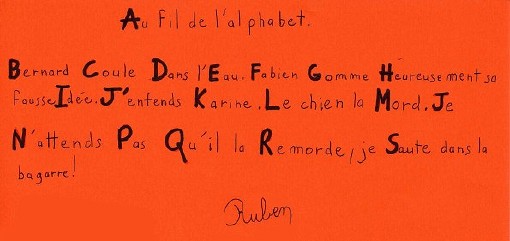 Au Fil de l'alphabet.
Bernard Coule Dans l'Eau. Fabien Gomme Heureusement sa
fausse Idée. J'entends Karine. Le chien la Mord. Je
N'attends Pas Qu'il la Remorde, je Saute dans la
bagarre!
Ruben